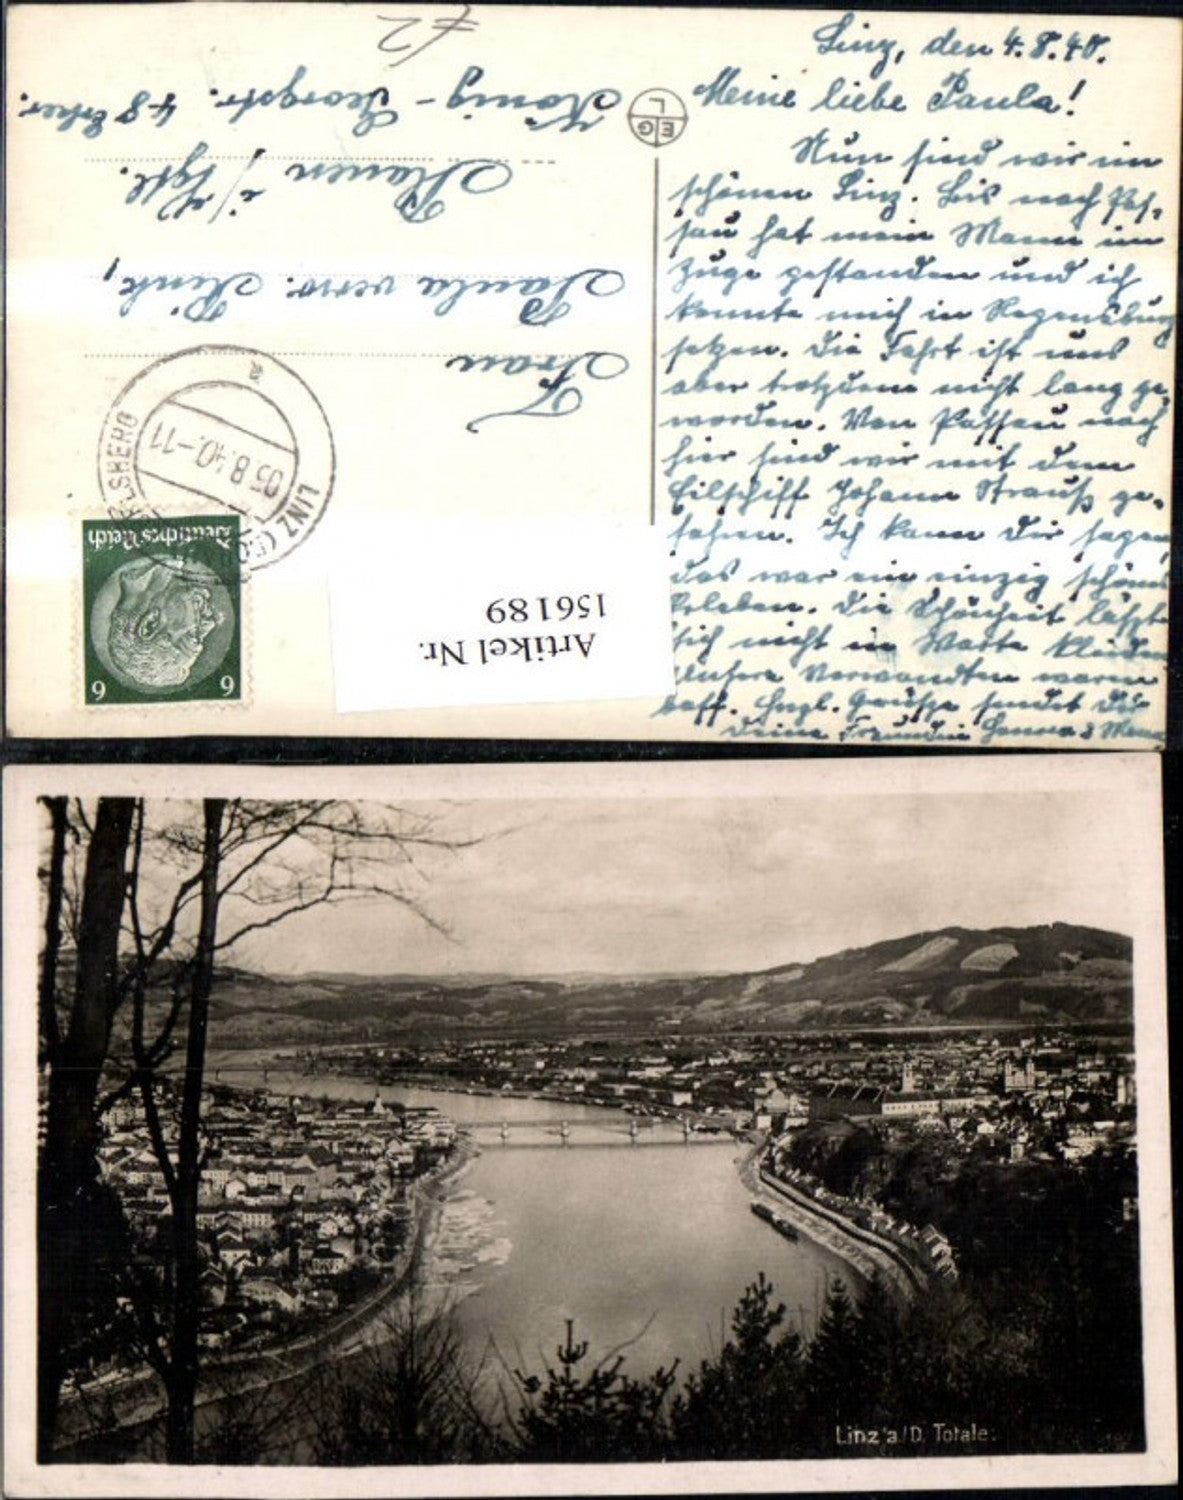 Linz, den 4.8.40.
Meine liebe Paula!
Nun sind wir im
schönen Linz. Bis nach Pas-
sau hat mein Mann im
Zuge gestanden und ich
konnte mich in Regensburg
setzen. Die Fahrt ist uns
aber trotzdem nicht lang ge-
worden. Von Passau nach
hier sind wir mit dem
Eilschiff Johann Strauß ge-
fahren. Ich kann Dir sagen,
das war ein einzig schönes
Erleben. Die Schönheit läszt
sich nicht in Worte kleiden
Unsere Verwandten waren
baff. Hrzl. Grüsze sendet Dir
Deine Freundin
Frau
Paula verw.
Plauen i/Vgtl.
König-Georgstr. 48
EGL
LINZ
05.8.40.-11
Deutsches Reich
6 6
Artikel Nr.
156189
Linz a/D. Totale.